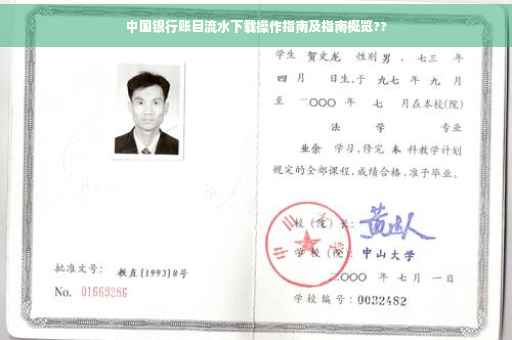 中国银行账目流水下载操作指南及指南概览??
学生 贺文龙 性别 男 、七三 年
四 月 日生,于 九七 年 九 月
至 二〇〇〇 年 七 月在本校(院)
法 学 专业
业余 学习,修完 本 科教学计划
规定的全部课程,成绩合格,准予毕业。
校(院)长:
学校(院): 中山大学
二〇〇〇 年 七 月 一 日
批准文号: 教直[1993]8号
No. 01669286
学校编号: 0032482